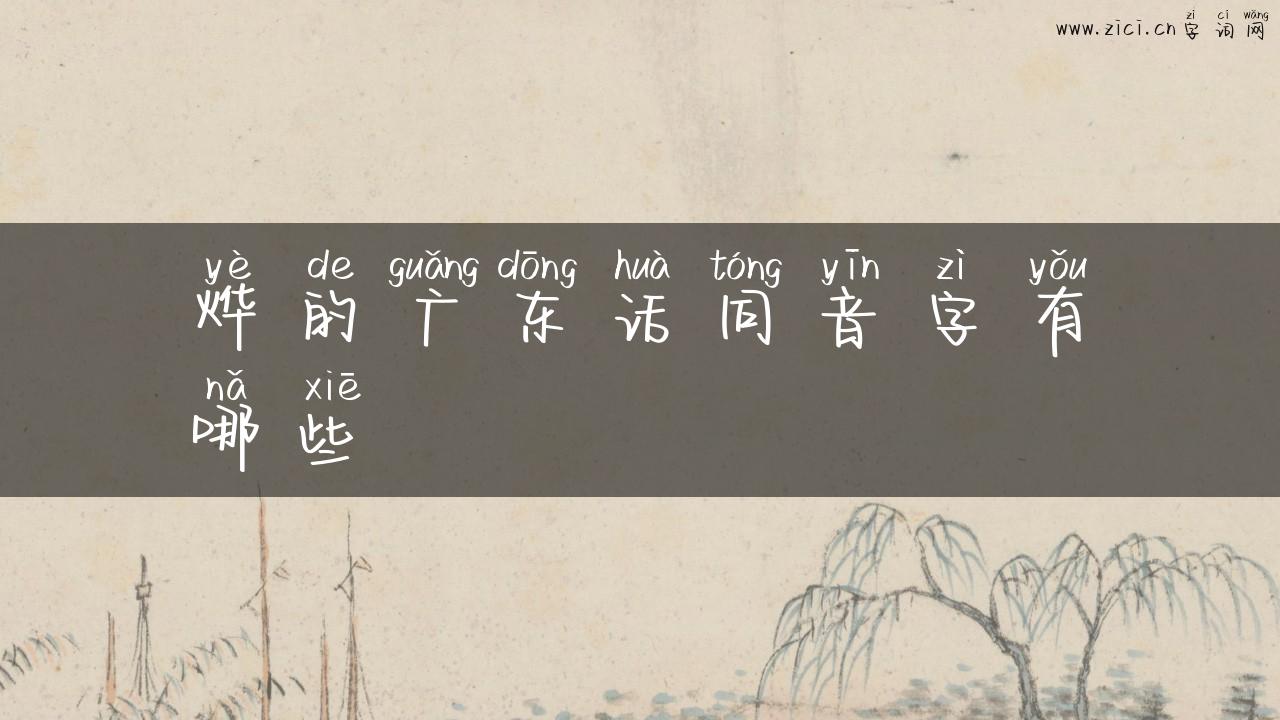 zì cí wǎng
www.zici.cn 字词网
yè de guǎng dōng huà tóng yīn zì yǒu
烨的广东话同音字有
nǎ xiē
哪些